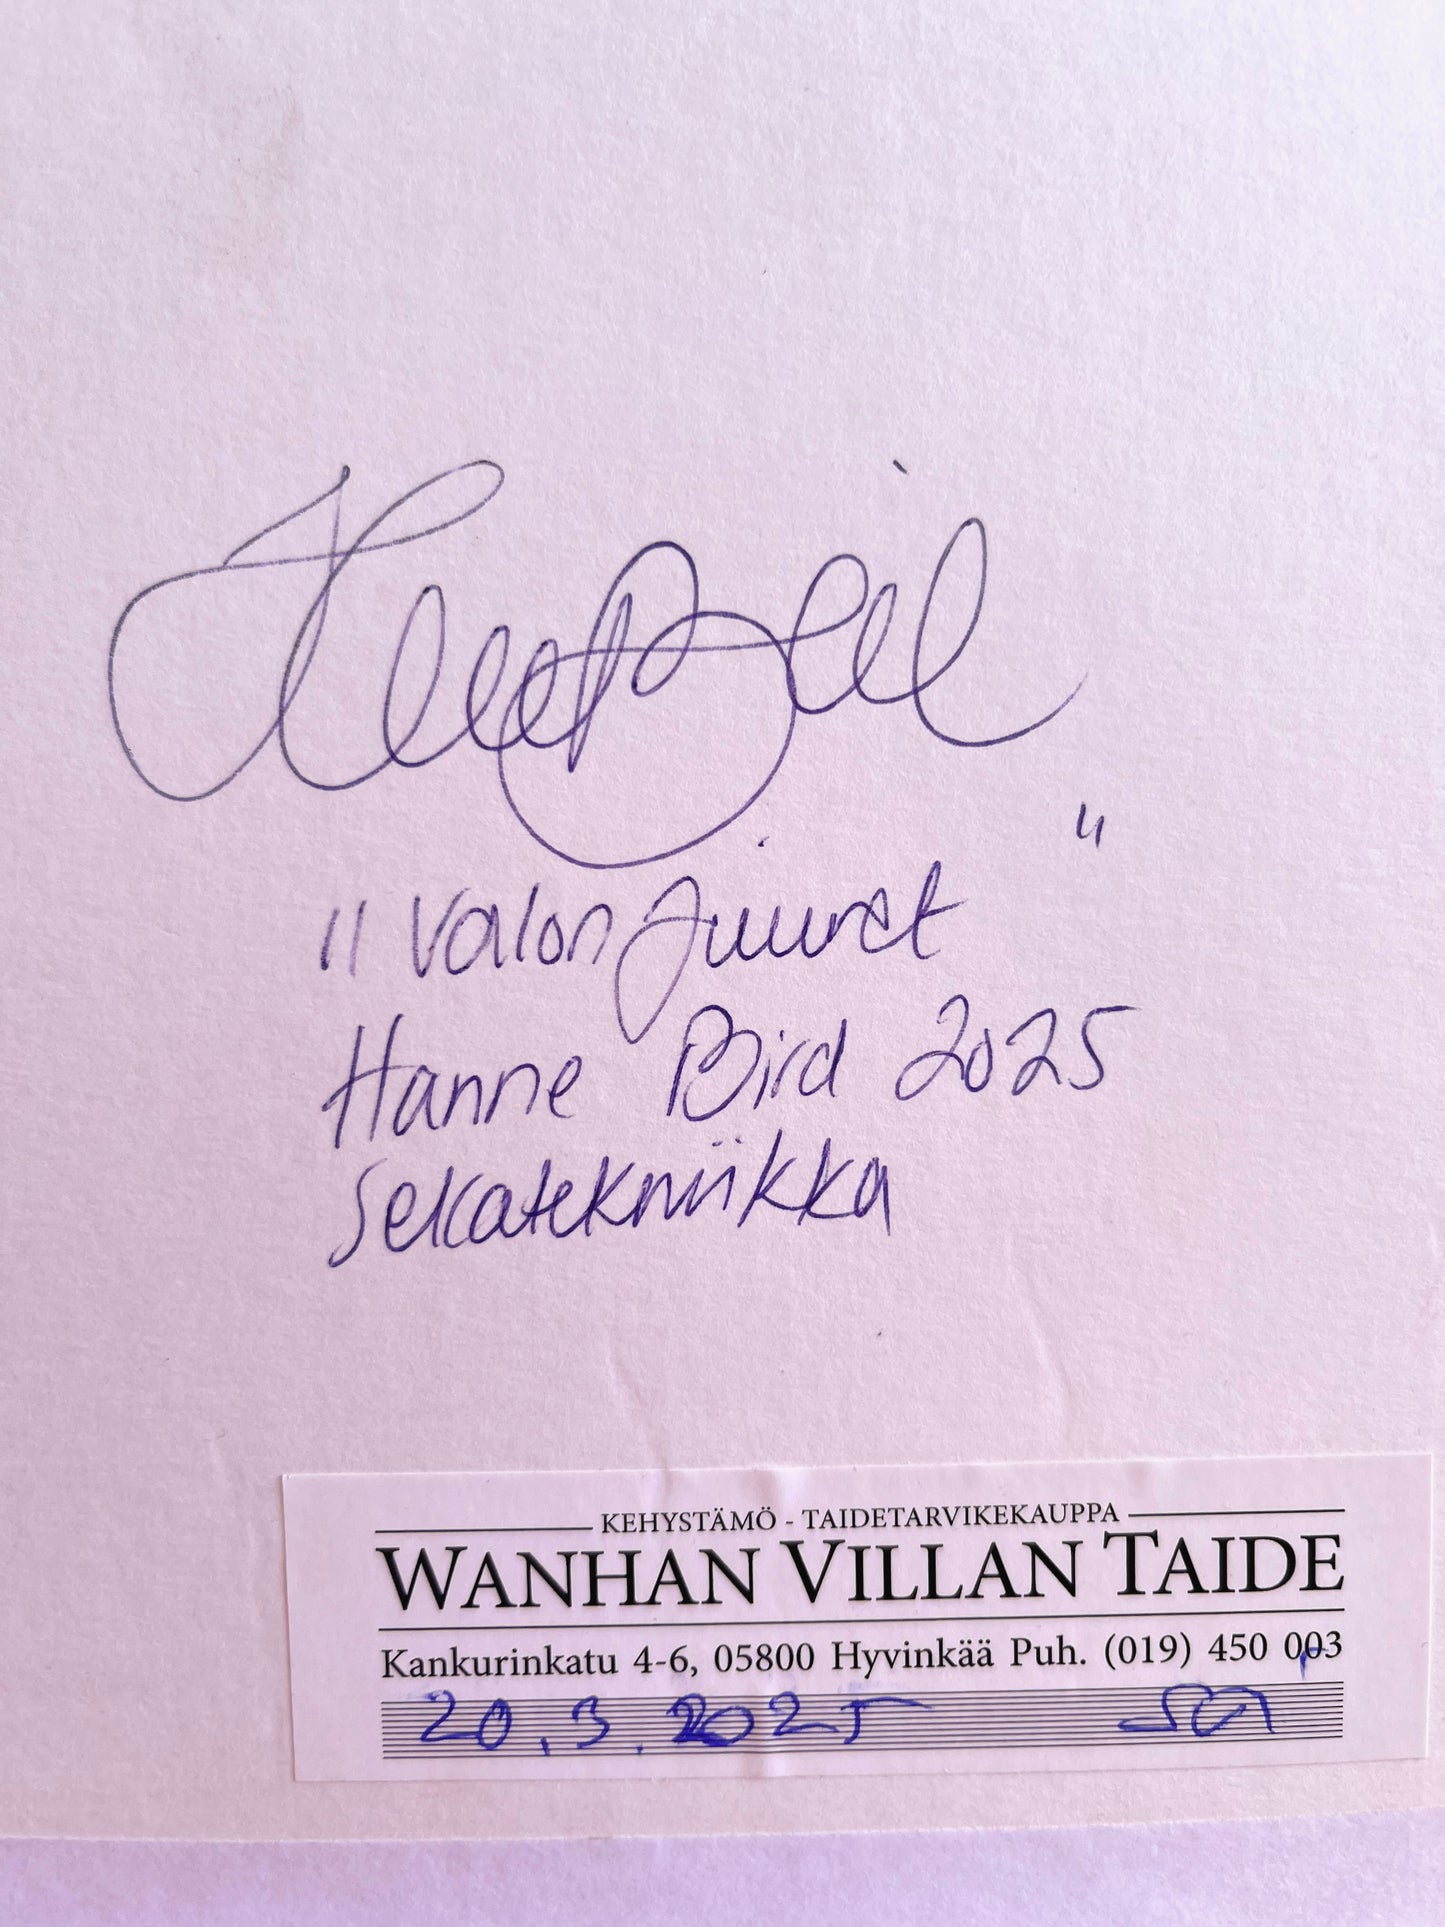 "Valon juuret"
Hanne Bird 2025
Sekatekniikka
KEHYSTÄMÖ - TAIDETARVIKEKAUPPA
WANHAN VILLAN TAIDE
Kankurinkatu 4-6, 05800 Hyvinkää Puh. (019) 450 003
20.3.2025